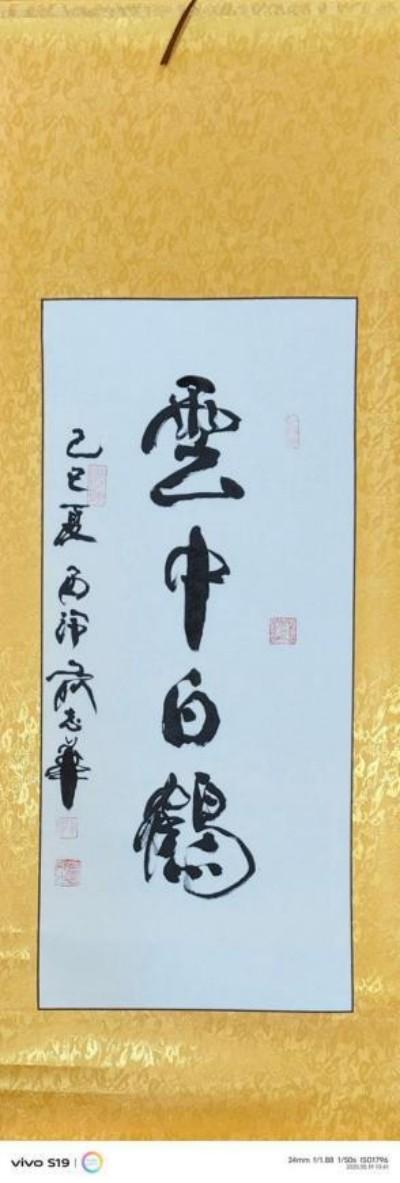 雲中白鶴
己巳夏 志華
vivo S19
24mm f/1.88 1/50s ISO1796